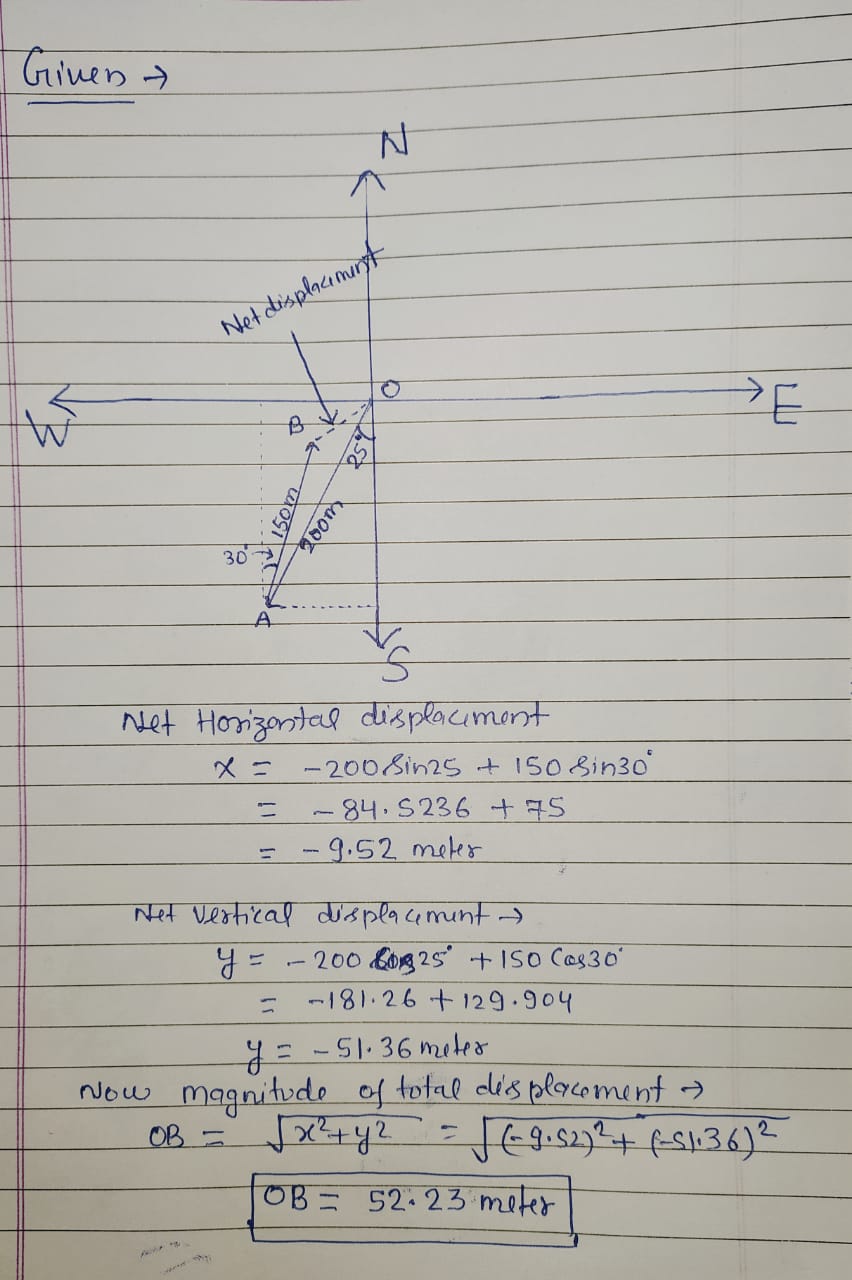 Given →
N
Net displacement
O
W
E
B
25°
150m
200m
30°
A
S
Net Horizontal displacement
x = -200 Sin25 + 150 Sin30°
= -84.5236 + 75
= -9.52 meter
Net vertical displacement →
y = -200 Cos25° + 150 Cos30°
= -181.26 + 129.904
y = -51.36 meter
Now magnitude of total displacement →
OB = √x²+y² = √(-9.52)²+(-51.36)²
OB = 52.23 meter